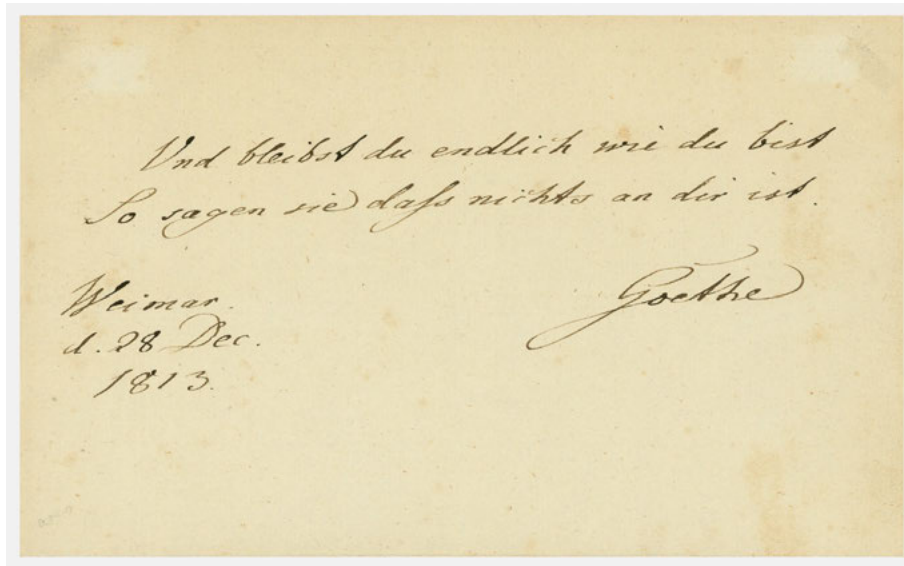 Und bleibst du endlich wie du bist
So sagen sie daſs nichts an dir ist.
Weimar.
d. 28 Dec.
1813.
Goethe